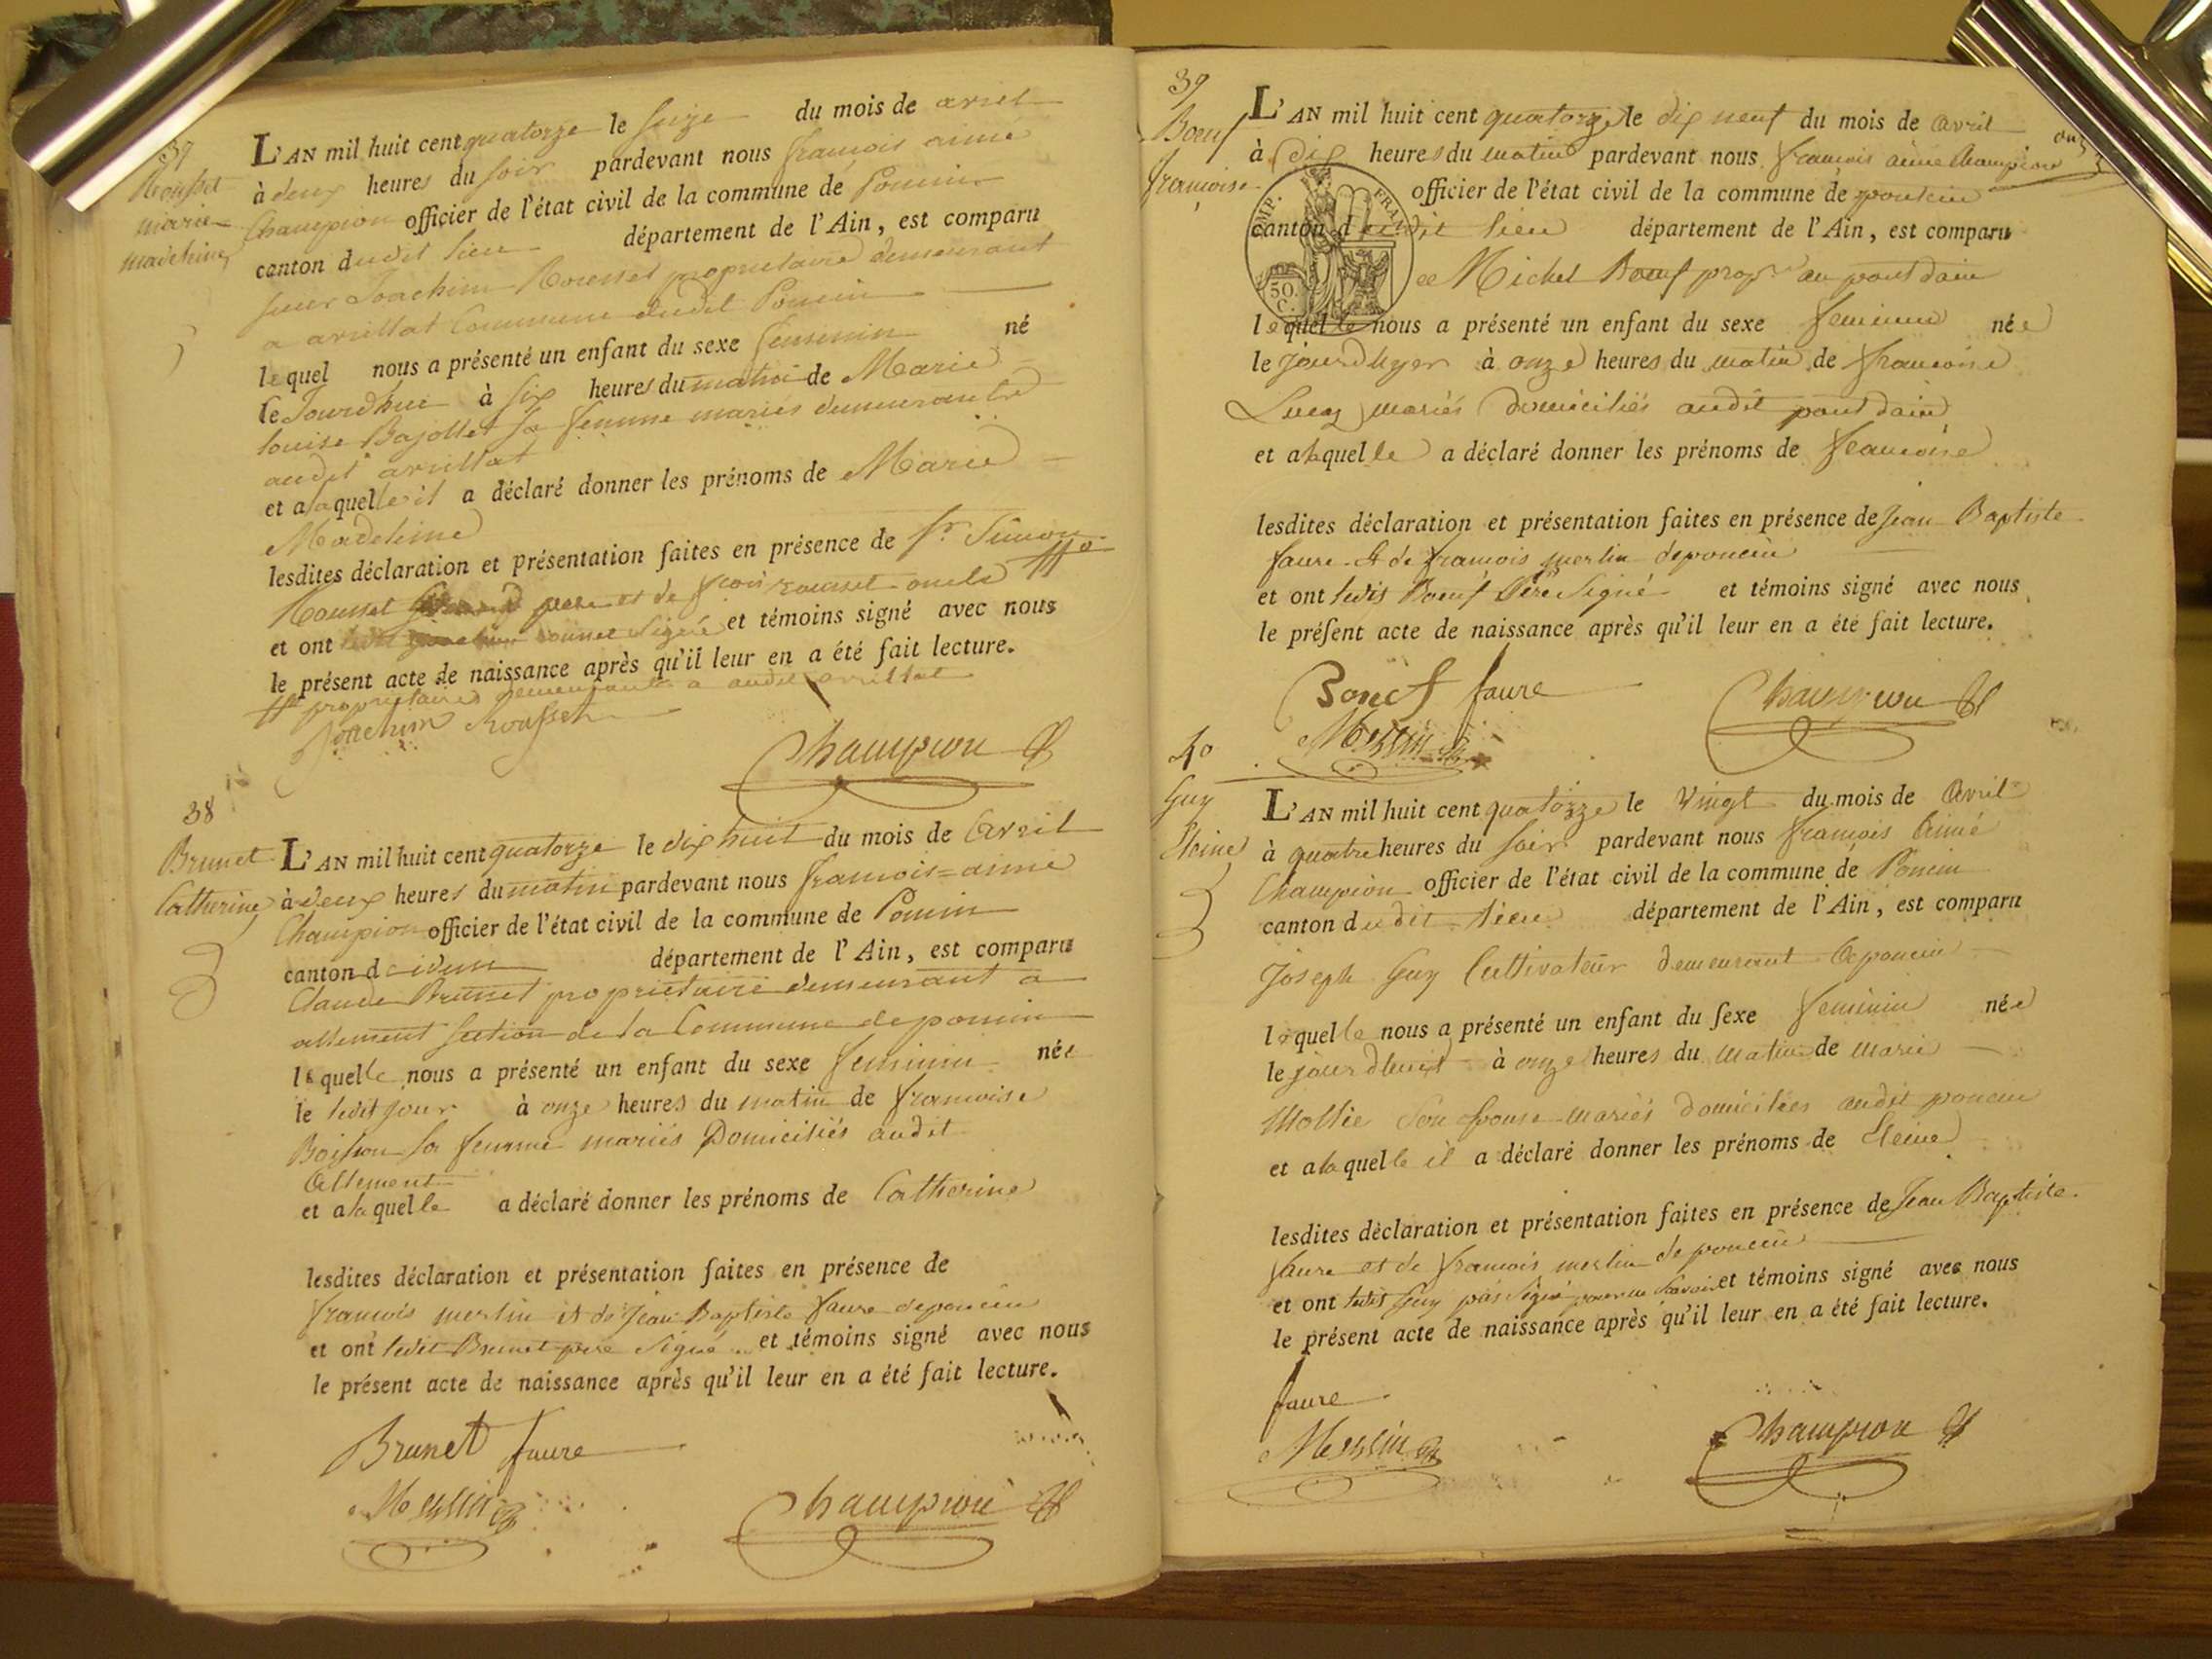 37
Rousset
marie
madeleine
L'AN mil huit cent quatorze le seize du mois de avril
à deux heures du soir pardevant nous francois aimé
Champion officier de l'état civil de la commune de Poncin
canton dudit lieu département de l'Ain, est comparu
sieur Joachim Rousset propriétaire demeurant
a avrillat Commune dudit Poncin
lequel nous a présenté un enfant du sexe feminin né
le Jourdhui à six heures du matin de Marie
louise Bajollet sa femme mariés demeurants
audit avrillat
et a laquelle il a déclaré donner les prénoms de Marie
Madeleine
lesdites déclaration et présentation faites en présence de sr. Simon
Rousset pere et de fcois rousset oncle
et ont rousset signé et témoins signé avec nous
le présent acte de naissance après qu'il leur en a été fait lecture.
propriétaires demeurants a audit avrillat
Joachim Rousset
Champion
38
Brunet
Catherine
L'AN mil huit cent quatorze le dix huit du mois de Avril
à deux heures du matin pardevant nous francois=aimé
Champion officier de l'état civil de la commune de Poncin
canton d idem département de l'Ain, est comparu
Claude Brunet propriétaire demeurant a
allement section de la Commune de poncin
lequelle nous a présenté un enfant du sexe feminin née
le ledit jour à onze heures du matin de francoise
Boisson sa femme mariés Domiciliés audit
Allement
et a laquelle a déclaré donner les prénoms de Catherine
lesdites déclaration et présentation faites en présence de
francois merlin et de Jean Baptiste faure de poncin
et ont ledit Brunet pere signé et témoins signé avec nous
le présent acte de naissance après qu'il leur en a été fait lecture.
Brunet faure
Merlin
Champion
39
Boeuf
francoise
L'AN mil huit cent quatorze le dix neuf du mois de avril
à dix heures du matin pardevant nous francois aimé Champion
officier de l'état civil de la commune de poncin
canton dudit lieu département de l'Ain, est comparu
IMP. FRAN
50.
C.
Michel Boeuf propre au pont dain
lequelle nous a présenté un enfant du sexe feminin née
le jourdhyer à onze heures du matin de francoise
Lucy mariés domiciliés audit pont dain
et a laquelle a déclaré donner les prénoms de francoise
lesdites déclaration et présentation faites en présence de Jean Baptiste
faure et de francois merlin de poncin
et ont ledit Boeuf Père signé et témoins signé avec nous
le présent acte de naissance après qu'il leur en a été fait lecture.
Boeuf faure
Champion
Merlin
40
Guy
L'AN mil huit cent quatorze le vingt du mois de Avril
à quatre heures du soir pardevant nous francois Aimé
Champion officier de l'état civil de la commune de Poncin
canton dudit lieu département de l'Ain, est comparu
Joseph Guy Cultivateur demeurant a poncin
lequelle nous a présenté un enfant du sexe feminin née
le jourdhuit à onze heures du matin de marie
Mollie son epouse mariés domiciliés audit poncin
et a laquelle il a déclaré donner les prénoms de
lesdites déclaration et présentation faites en présence de Jean Baptiste
faure et de francois merlin de poncin
et ont ledit Guy pas signé pour ne savoir et témoins signé avec nous
le présent acte de naissance après qu'il leur en a été fait lecture.
faure
Merlin
Champion